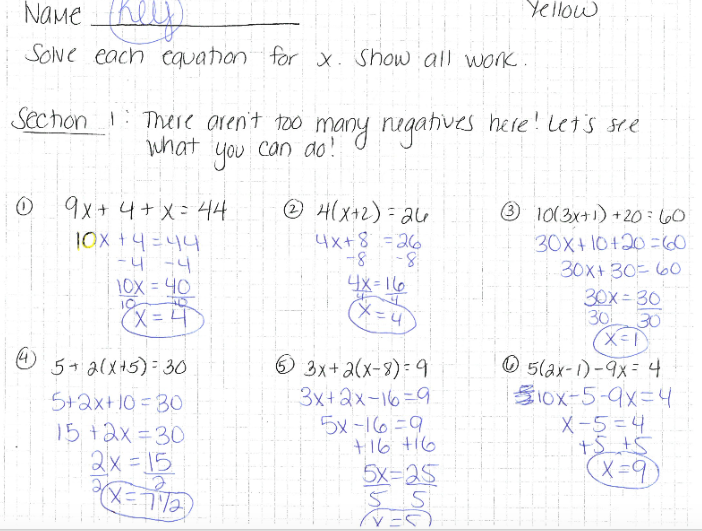 Name Key Yellow
Solve each equation for x. Show all work.
Section 1: There aren't too many negatives here! Let's see
what you can do!
① 9x + 4 + x = 44
10x + 4 = 44
-4 -4
10x = 40
10 10
x = 4
② 4(x+2) = 26
4x+8 = 26
-8 -8
4x = 16
4 4
x = 4
③ 10(3x+1) + 20 = 60
30x + 10 + 20 = 60
30x + 30 = 60
30x = 30
30 30
x = 1
④ 5 + 2(x+5) = 30
5+2x+10 = 30
15 + 2x = 30
2x = 15
2 2
x = 7 1/2
⑤ 3x + 2(x-8) = 9
3x + 2x - 16 = 9
5x - 16 = 9
+16 +16
5x = 25
5 5
x = 5
⑥ 5(2x-1) - 9x = 4
10x - 5 - 9x = 4
x - 5 = 4
+5 +5
x = 9